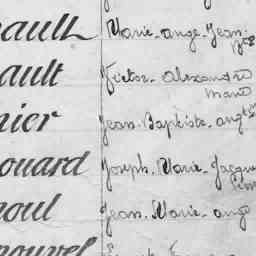 ault Marie-ange-Jean-
ault Victor-Alexandre
marie
nier Jean-Baptiste-ange
ouard Joseph-Marie-Jacque
aoul Jean-Marie-ange
ouvel